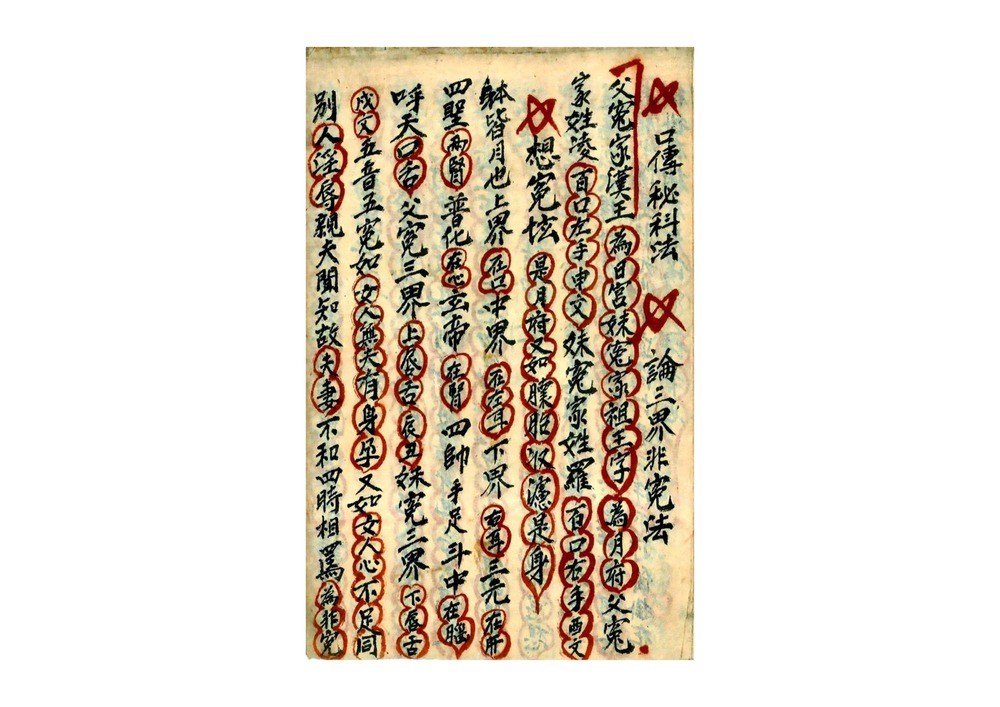 口傳秘科法 論三界非寃法
父寃家漢王為日宮妹寃家祖王字為月府父寃
家姓淩百口左手申文妹寃家姓羅百口右手酉文
想寃坛是月府又如臕胎汲濾是身
躰皆月也上界在口中界在左耳下界右耳三元在肝
四聖兩腎普化在心玄帝在腎四帥手足斗中在腦
呼天口舌父寃三界上唇舌辰丑妹寃三界下唇舌
戌亥五音五寃如女人無夫有身孕又如女人心不足同
別人淫辱親夫聞知故夫妻不和四時相罵為非寃